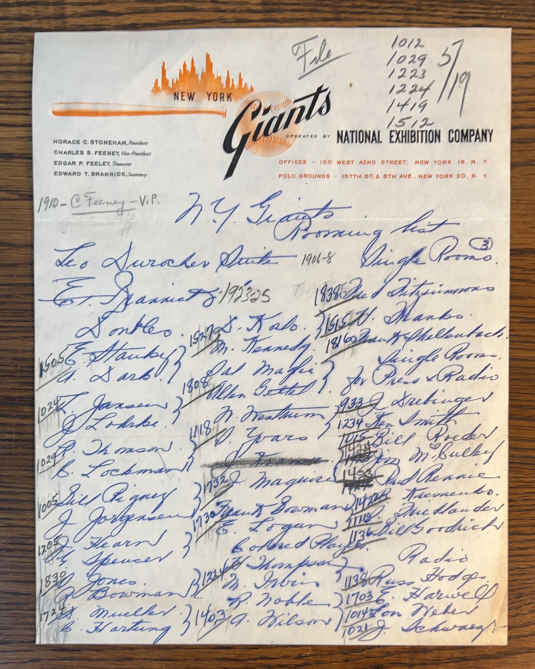 File
1012
1029
1223
1224
1419
1512
5/19
NEW YORK
Giants
OPERATED BY NATIONAL EXHIBITION COMPANY
HORACE C. STONEHAM, President
CHARLES S. FEENEY, Vice-President
EDGAR P. FEELEY, Treasurer
EDWARD T. BRANNICK, Secretary
OFFICES - 100 WEST 42ND STREET, NEW YORK 18, N.Y.
POLO GROUNDS - 157TH ST. & 8TH AVE., NEW YORK 20, N.Y.
1910 - C. Feeney - V.P.
N Y Giants
Rooming list
Leo Durocher Suite 1906-8
E. Brannick 1923-25
Doubles
1505 E. Stanky
A. Dark
1024 L. Jansen
J. Lohrke
1029 B. Thomson
C. Lockman
1005 Bill Rigney
J. Jorgensen
J. Hearn
G. Spencer
1830 S. Jones
R. Bowman
1724 D. Mueller
C. Hartung
1527 D. Koslo
M. Kennedy
Sal Maglie
1808 Allen Gettel
1118 W. Westrum
S. Yvars
1732 J. Maguire
1730 Frank Bowman
E. Logan
Colored Players
1224 H. Thompson
M. Irvin
R. Noble
1403 A. Wilson
Single Rooms 3
1838 Fred Fitzsimmons
1515 H. Franks
1816 Frank Shellenback
Single Rooms
for Press & Radio
933 J. Drebinger
1234 Ken Smith
1015 Bill Roeder
Jos McCulley
Rud Rennie
Kremenko
1118
1136 Bill Goodrich
Radio
1138 Russ Hodges
1703 E. Harwell
1014 Tom Weber
1021 J.